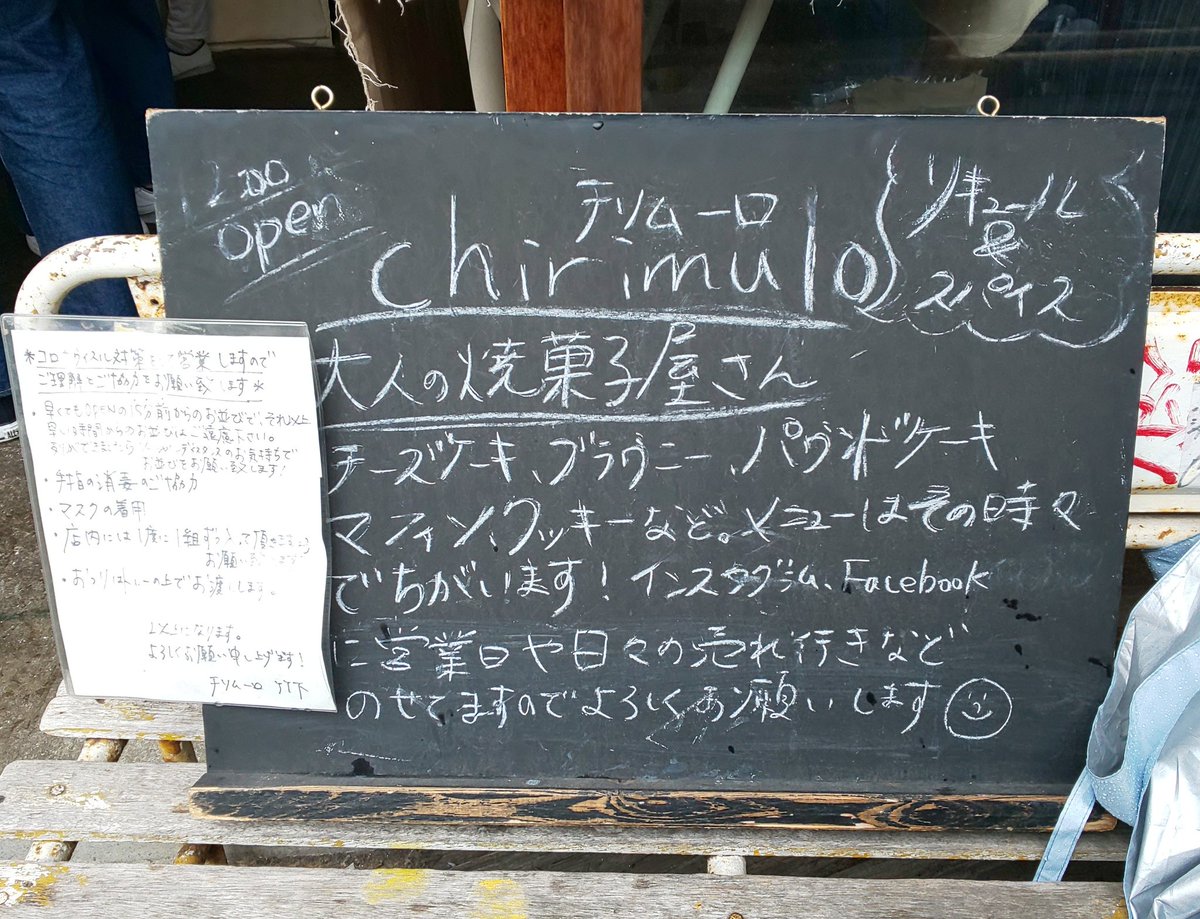 open
チリムーロ
chirimulo
リキュール
&
スパイス
大人の焼菓子屋さん
チーズケーキ、ブラウニー、パウンドケーキ
マフィン、クッキーなど。メニューはその時々
でちがいます！インスタグラム、Facebook
に営業日や日々の売れ行きなど
のせてますのでよろしくお願いします
*コロナウィルス対策 営業しますので
ご理解とご協力をお願い致します*
・早くてもOPENの15分前からのお並びで、それ以上
早い時間からのお並びはご遠慮下さい。
のお気持ちで
お並びをお願い致します！
・手指の消毒のご協力
・マスクの着用
・店内には1度に1組ずつ
お願い
・おつりはトレーの上でお渡しします。
以上になります。
よろしくお願い申し上げます！
チリムーロ